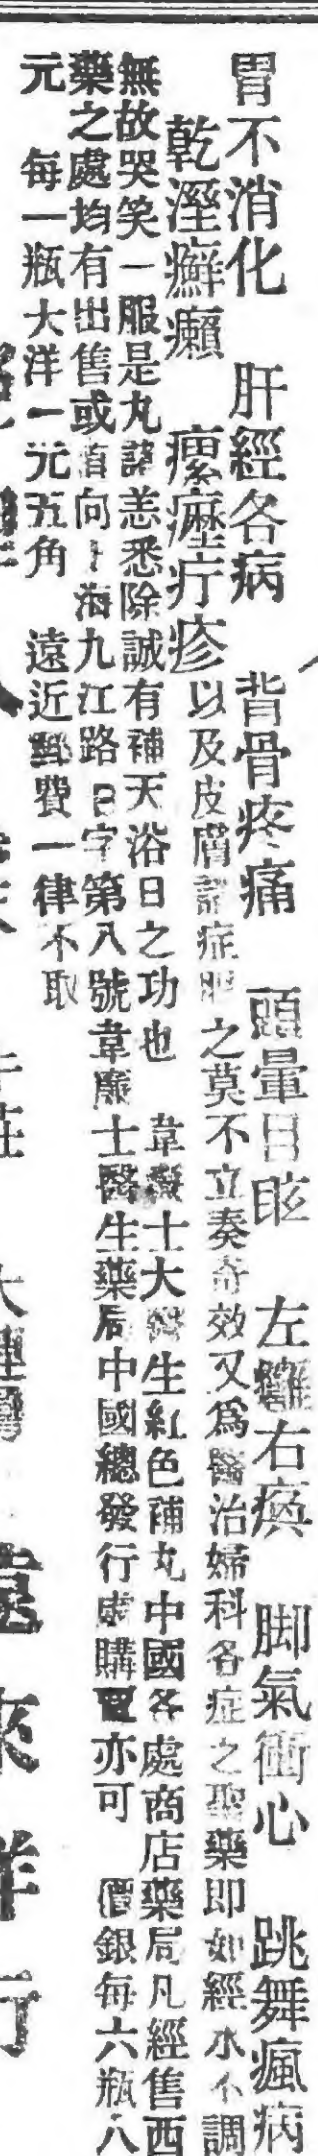 胃不消化　肝經各病　背骨疼痛　頭暈目眩　左癱右瘓　脚氣衝心　跳舞瘋病
乾溼癬癩　瘰癧疔疹以及皮膚諸症服之莫不立奏奇效又爲醫治婦科各症之聖藥即如經水不調
無故哭笑一服是丸諸恙悉除誠有補天浴日之功也　韋廉士大醫生紅色補丸中國各處商店藥局凡經售西
藥之處均有出售或直向上海九江路B字第八號韋廉士醫生藥局中國總發行處購買亦可　價銀每六瓶八
元　每一瓶大洋一元五角　遠近郵費一律不取